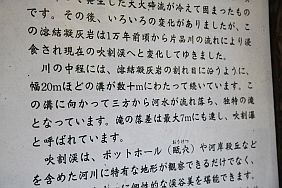 て発生した大火砕流が冷えて固まったもの
です。その後、いろいろの変化がありましたが、こ
の溶結凝灰岩は1万年前頃から片品川の流れにより浸
食され現在の吹割渓へと変化してゆきました。
川の中程には、溶結凝灰岩の割れ目に沿うように、
幅20mほどの溝が数十mにわたって続いています。こ
の溝に向かって三方から河水が流れ落ち、独特の滝
となっています。滝の落差は最大7mにも達し、吹割瀑
と呼ばれています。
吹割渓は、ポットホール(甌穴)や河岸段丘など
おうけつ
を含めた河川に特有な地形が観察できるだけでなく、
に個性的な渓谷美を堪能できます。